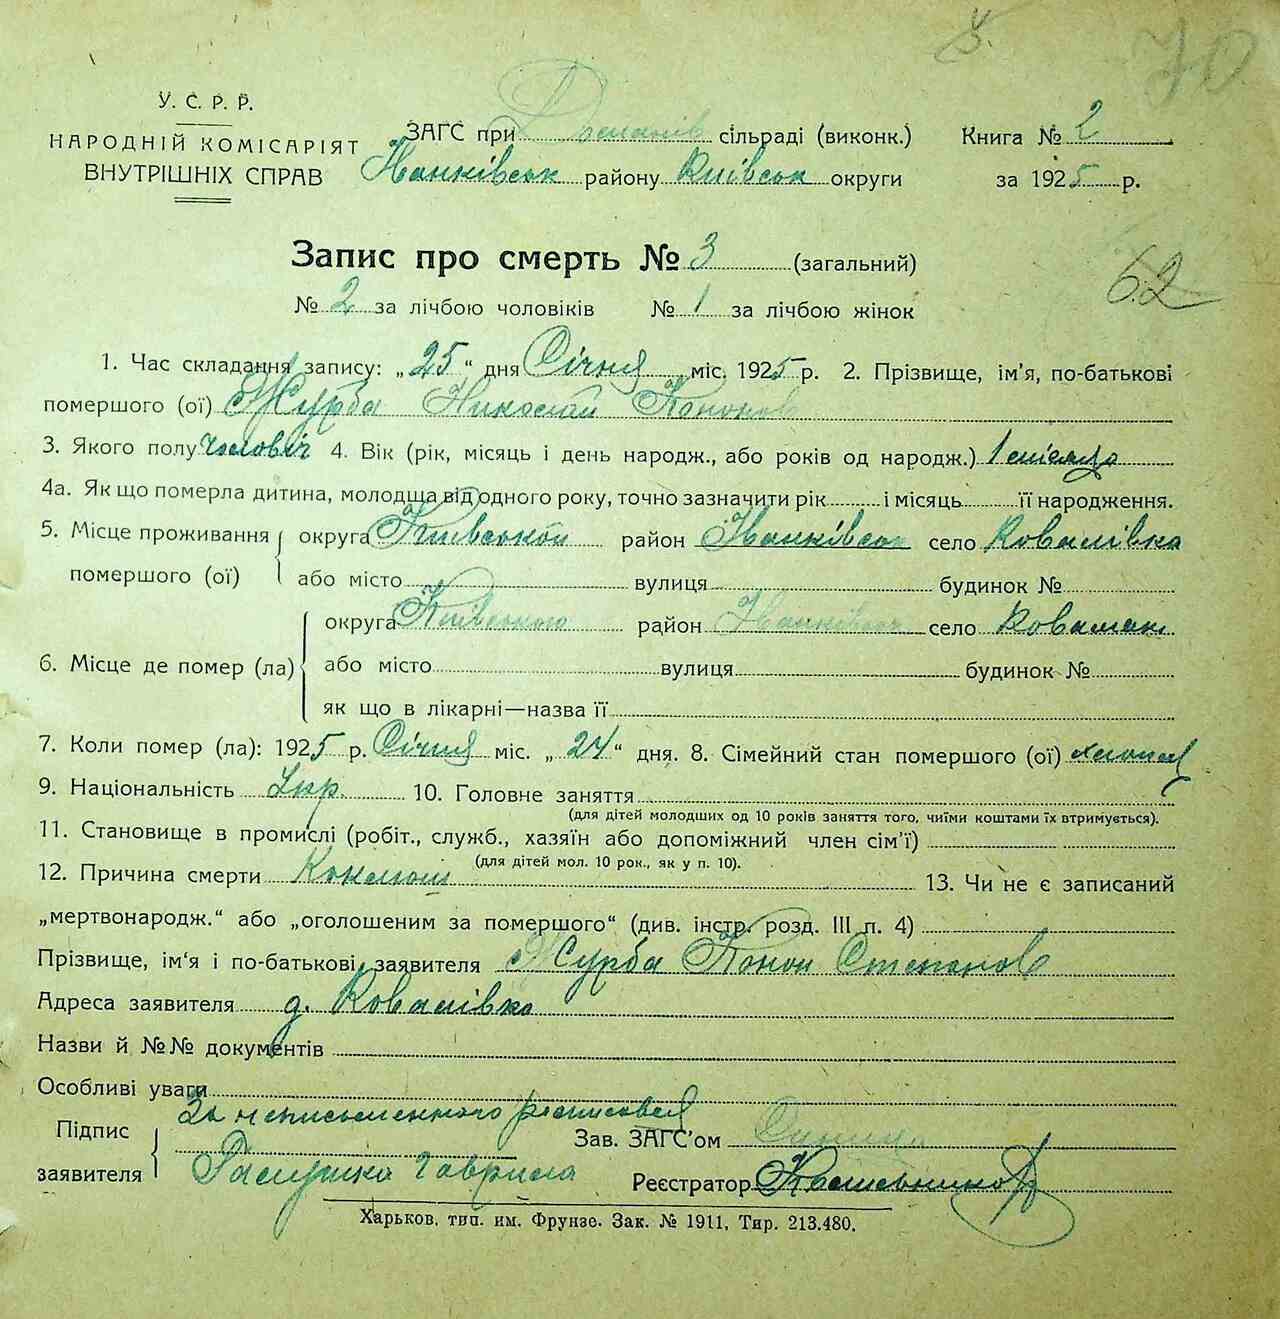 70
У. С. Р. Р.
НАРОДНІЙ КОМІСАРІЯТ
ВНУТРІШНІХ СПРАВ
ЗАГС при сільраді (виконк.)
Іванківськ району Київськ округи
Книга № 2
за 1925 р.
Запис про смерть № 3 (загальний)
62
№ 2 за лічбою чоловіків № 1 за лічбою жінок
1. Час складання запису: „25“ дня Січня міс. 1925 р. 2. Прізвище, ім'я, по-батькові
помершого (ої) Журба Николай Кононов
3. Якого полу Чоловіч 4. Вік (рік, місяць і день народж., або років од народж.) 1
4а. Як що померла дитина, молодща від одного року, точно зазначити рік і місяць її народження.
5. Місце проживання округа Київської район Іванківськ село Ковалівка
помершого (ої) або місто вулиця будинок №
округа Київського район Іванківськ село
6. Місце де помер (ла) або місто вулиця будинок №
як що в лікарні—назва її
7. Коли помер (ла): 1925 р. Січня міс. „24“ дня. 8. Сімейний стан помершого (ої)
9. Національність Укр. 10. Головне заняття
(для дітей молодших од 10 років заняття того, чиїми коштами їх втримується).
11. Становище в промислі (робіт., служб., хазяїн або допоміжний член сім'ї)
(для дітей мол. 10 рок., як у п. 10).
12. Причина смерти Коклюш 13. Чи не є записаний
„мертвонародж.“ або „оголошеним за помершого“ (див. інстр. розд. III п. 4)
Прізвище, ім'я і по-батькові заявителя Журба Конон Степанов
Адреса заявителя д. Ковалівка
Назви й №№ документів
Особливі уваги
За неписьменного росписався
Підпис
заявителя Гаврила
Зав. ЗАГС'ом
Реєстратор
Харьков, тип. им. Фрунзе. Зак. № 1911, Тир. 213.480.